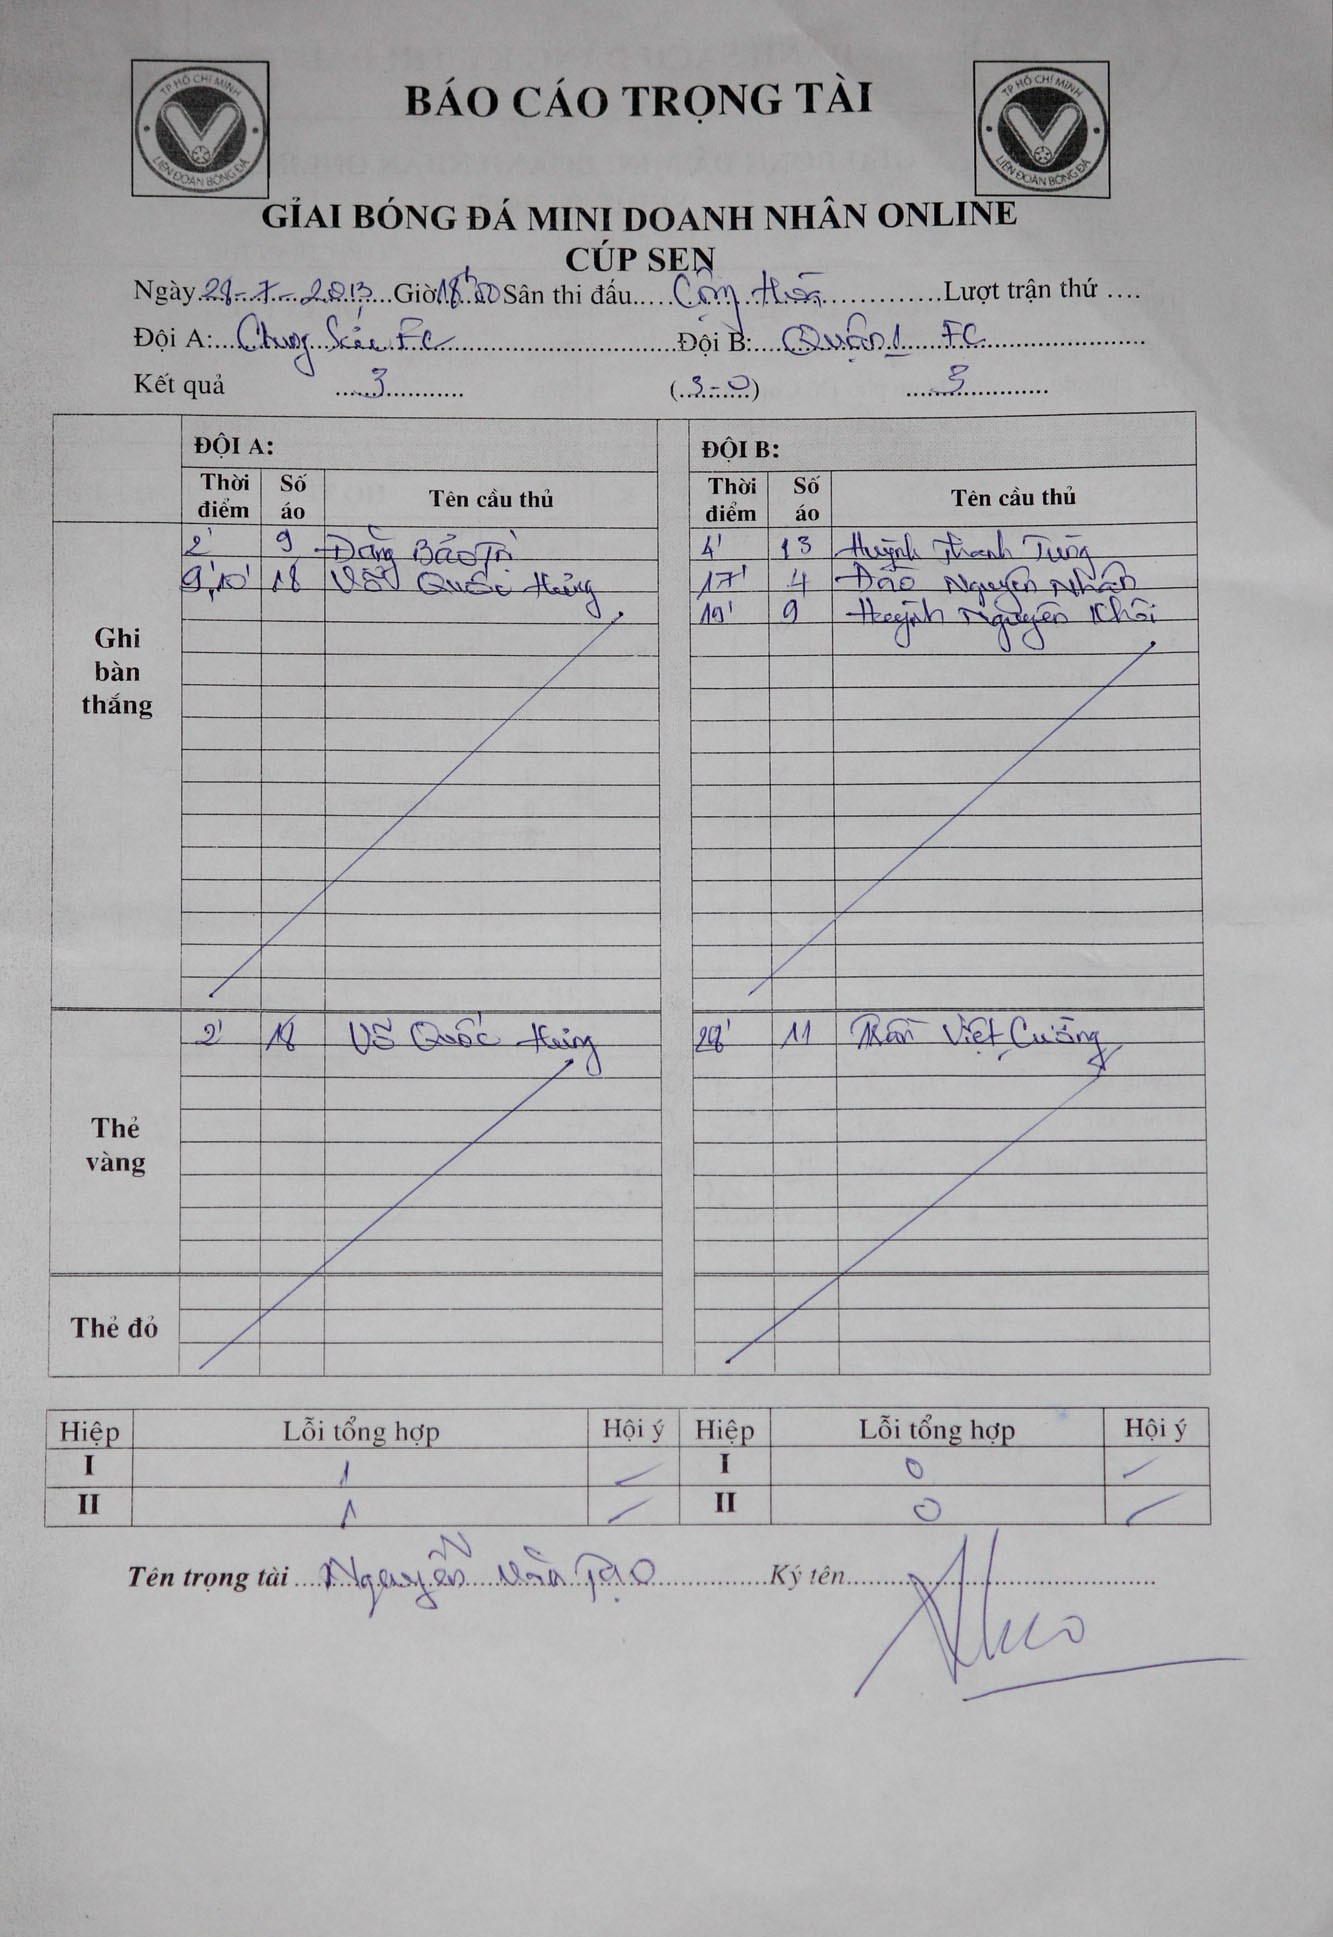 TP HỒ CHÍ MINH
LIÊN ĐOÀN BÓNG ĐÁ
BÁO CÁO TRỌNG TÀI
TP HỒ CHÍ MINH
LIÊN ĐOÀN BÓNG ĐÁ
GỈAI BÓNG ĐÁ MINI DOANH NHÂN ONLINE
CÚP SEN
Ngày 28-7-2013 Giờ 18h00 Sân thi đấu Cộng Hòa Lượt trận thứ ....
Đội A: Chung FC Đội B: Quận 1 FC
Kết quả 3 (3-0) 3
ĐỘI A: ĐỘI B:
Thời điểm Số áo Tên cầu thủ Thời điểm Số áo Tên cầu thủ
Ghi bàn thắng
2' 9 Đặng Bảo Trị 4' 13 Huỳnh Thanh Tùng
9',10' 18 Võ Quốc Hưng 17' 4 Đào Nguyên Nhân
19' 9 Huỳnh Nguyên Khôi
Thẻ vàng
2' 18 Võ Quốc Hưng 28' 11 Trần Việt Cường
Thẻ đỏ
Hiệp Lỗi tổng hợp Hội ý Hiệp Lỗi tổng hợp Hội ý
I 1 I 0
II 1 II 0
Tên trọng tài Nguyễn Văn Tạo Ký tên